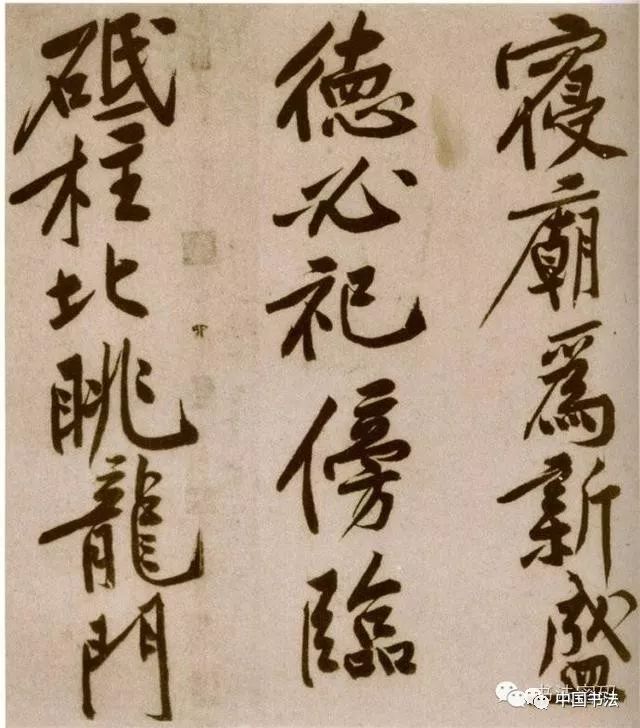 寝廟爲新盛
德必祀傍臨
砥柱北眺龍門
中国书法